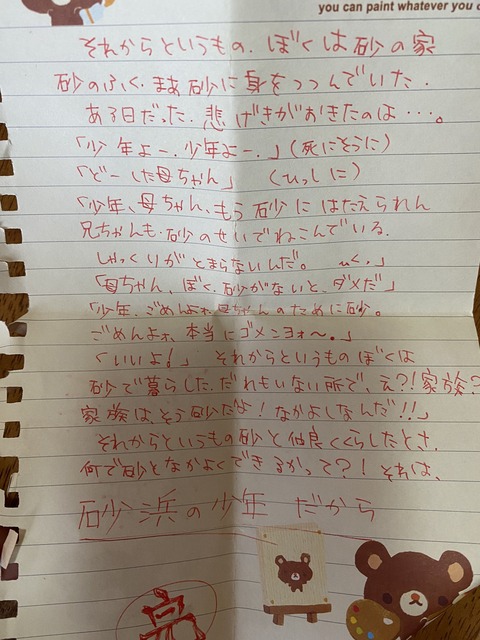 you can paint whatever you
それからというもの.ぼくは砂の家
砂のふく.まあ砂に身をつつんでいた.
ある日だった.悲げきがおきたのは…。
「少年よー.少年よー.」(死にそうに)
「どーした母ちゃん」(ひっしに)
「少年、母ちゃん、もう砂にはたえられん
兄ちゃんも.砂のせいでねこんでいる.
しゃっくりがとまらないんだ。
「母ちゃん、ぼく.砂がないと、ダメだ」
「少年.ごめんよォ.母ちゃんのために砂。
ごめんよォ、本当にゴメンヨォ〜。」
「いいよ!」それからというものぼくは
砂で暮らした.だれもいない所で、え?!家族?
家族は、そう砂だよ!なかよしなんだ!!」
それからというもの砂と仲良くくらしたとさ.
何で砂となかよくできるかって?!それは、
砂浜の少年 だから